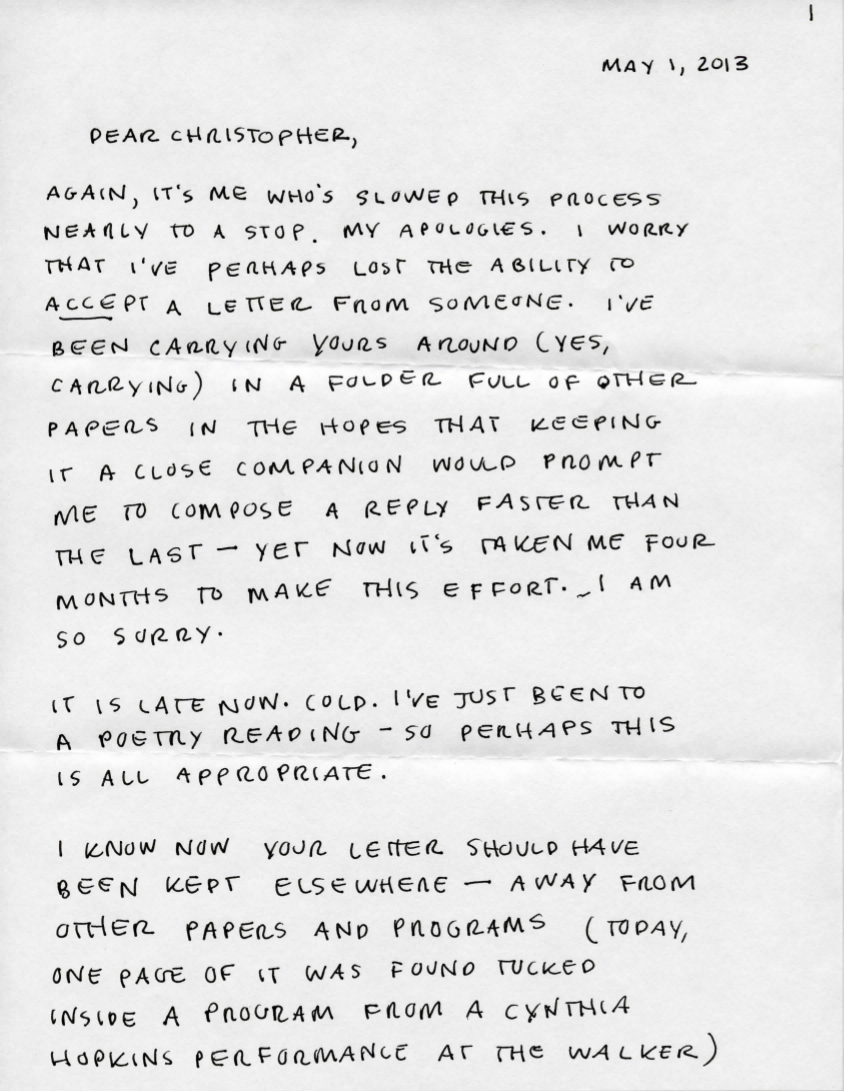 1
MAY 1, 2013
DEAR CHRISTOPHER,
AGAIN, IT'S ME WHO'S SLOWED THIS PROCESS
NEARLY TO A STOP. MY APOLOGIES. I WORRY
THAT I'VE PERHAPS LOST THE ABILITY TO
ACCEPT A LETTER FROM SOMEONE. I'VE
BEEN CARRYING YOURS AROUND (YES,
CARRYING) IN A FOLDER FULL OF OTHER
PAPERS IN THE HOPES THAT KEEPING
IT A CLOSE COMPANION WOULD PROMPT
ME TO COMPOSE A REPLY FASTER THAN
THE LAST — YET NOW IT'S TAKEN ME FOUR
MONTHS TO MAKE THIS EFFORT. ~ I AM
SO SORRY.
IT IS LATE NOW. COLD. I'VE JUST BEEN TO
A POETRY READING – SO PERHAPS THIS
IS ALL APPROPRIATE.
I KNOW NOW YOUR LETTER SHOULD HAVE
BEEN KEPT ELSEWHERE — AWAY FROM
OTHER PAPERS AND PROGRAMS (TODAY,
ONE PAGE OF IT WAS FOUND TUCKED
INSIDE A PROGRAM FROM A CYNTHIA
HOPKINS PERFORMANCE AT THE WALKER)